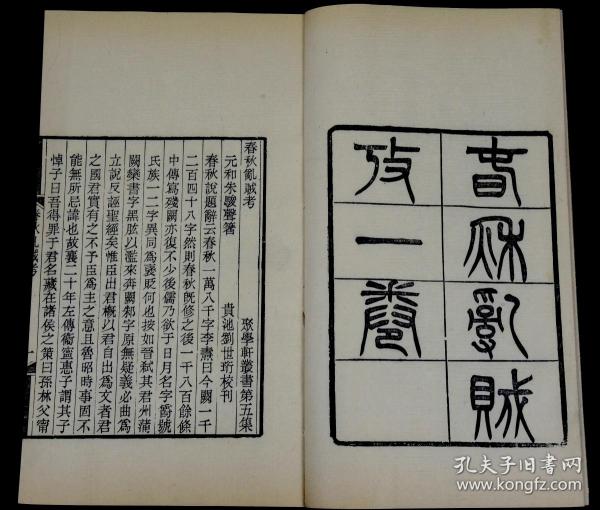 春秋亂賊
攷一卷
春秋亂賊考
聚學軒叢書第五集
元和朱駿聲著
貴池劉世珩校刊
春秋說題辭云春秋一萬八千字李燾曰今闕一千
二百四十八字然則春秋旣修之後一千八百餘條
中傳寫殘闕亦復不少後儒乃欲于日月名字爵號
氏族一二字異同爲襃貶何也按如晉弑其君州蒲
闕欒書字黑肱以濫來奔闕邾字原無疑義必曲爲
立說反誣聖經矣惟臣出君概以君自出爲文者君
之國君實有之不予臣爲主之意且魯昭時事固不
能無所忌諱也故襄二十年左傳衞甯惠子謂其子
悼子曰吾得罪于君名藏在諸侯之策曰孫林父甯
春秋亂賊考
一
孔夫子旧书网
www.kongfz.com